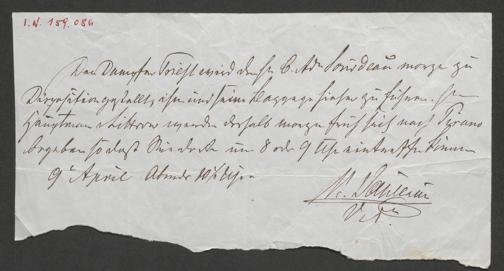 I.N. 159.086
Der Dampfer Triest wird dem H. C. Adm. Bourdeau morgen zu
Disposition gestellt, ihn und seine Baggage hieher zu führen. H.
Hauptmann Littrow werden deshalb morgen früh sich nach Pyrano
begeben so dass Sie dort um 8 oder 9 Uhr eintreffen können
9 April Abends 10½ Uhr